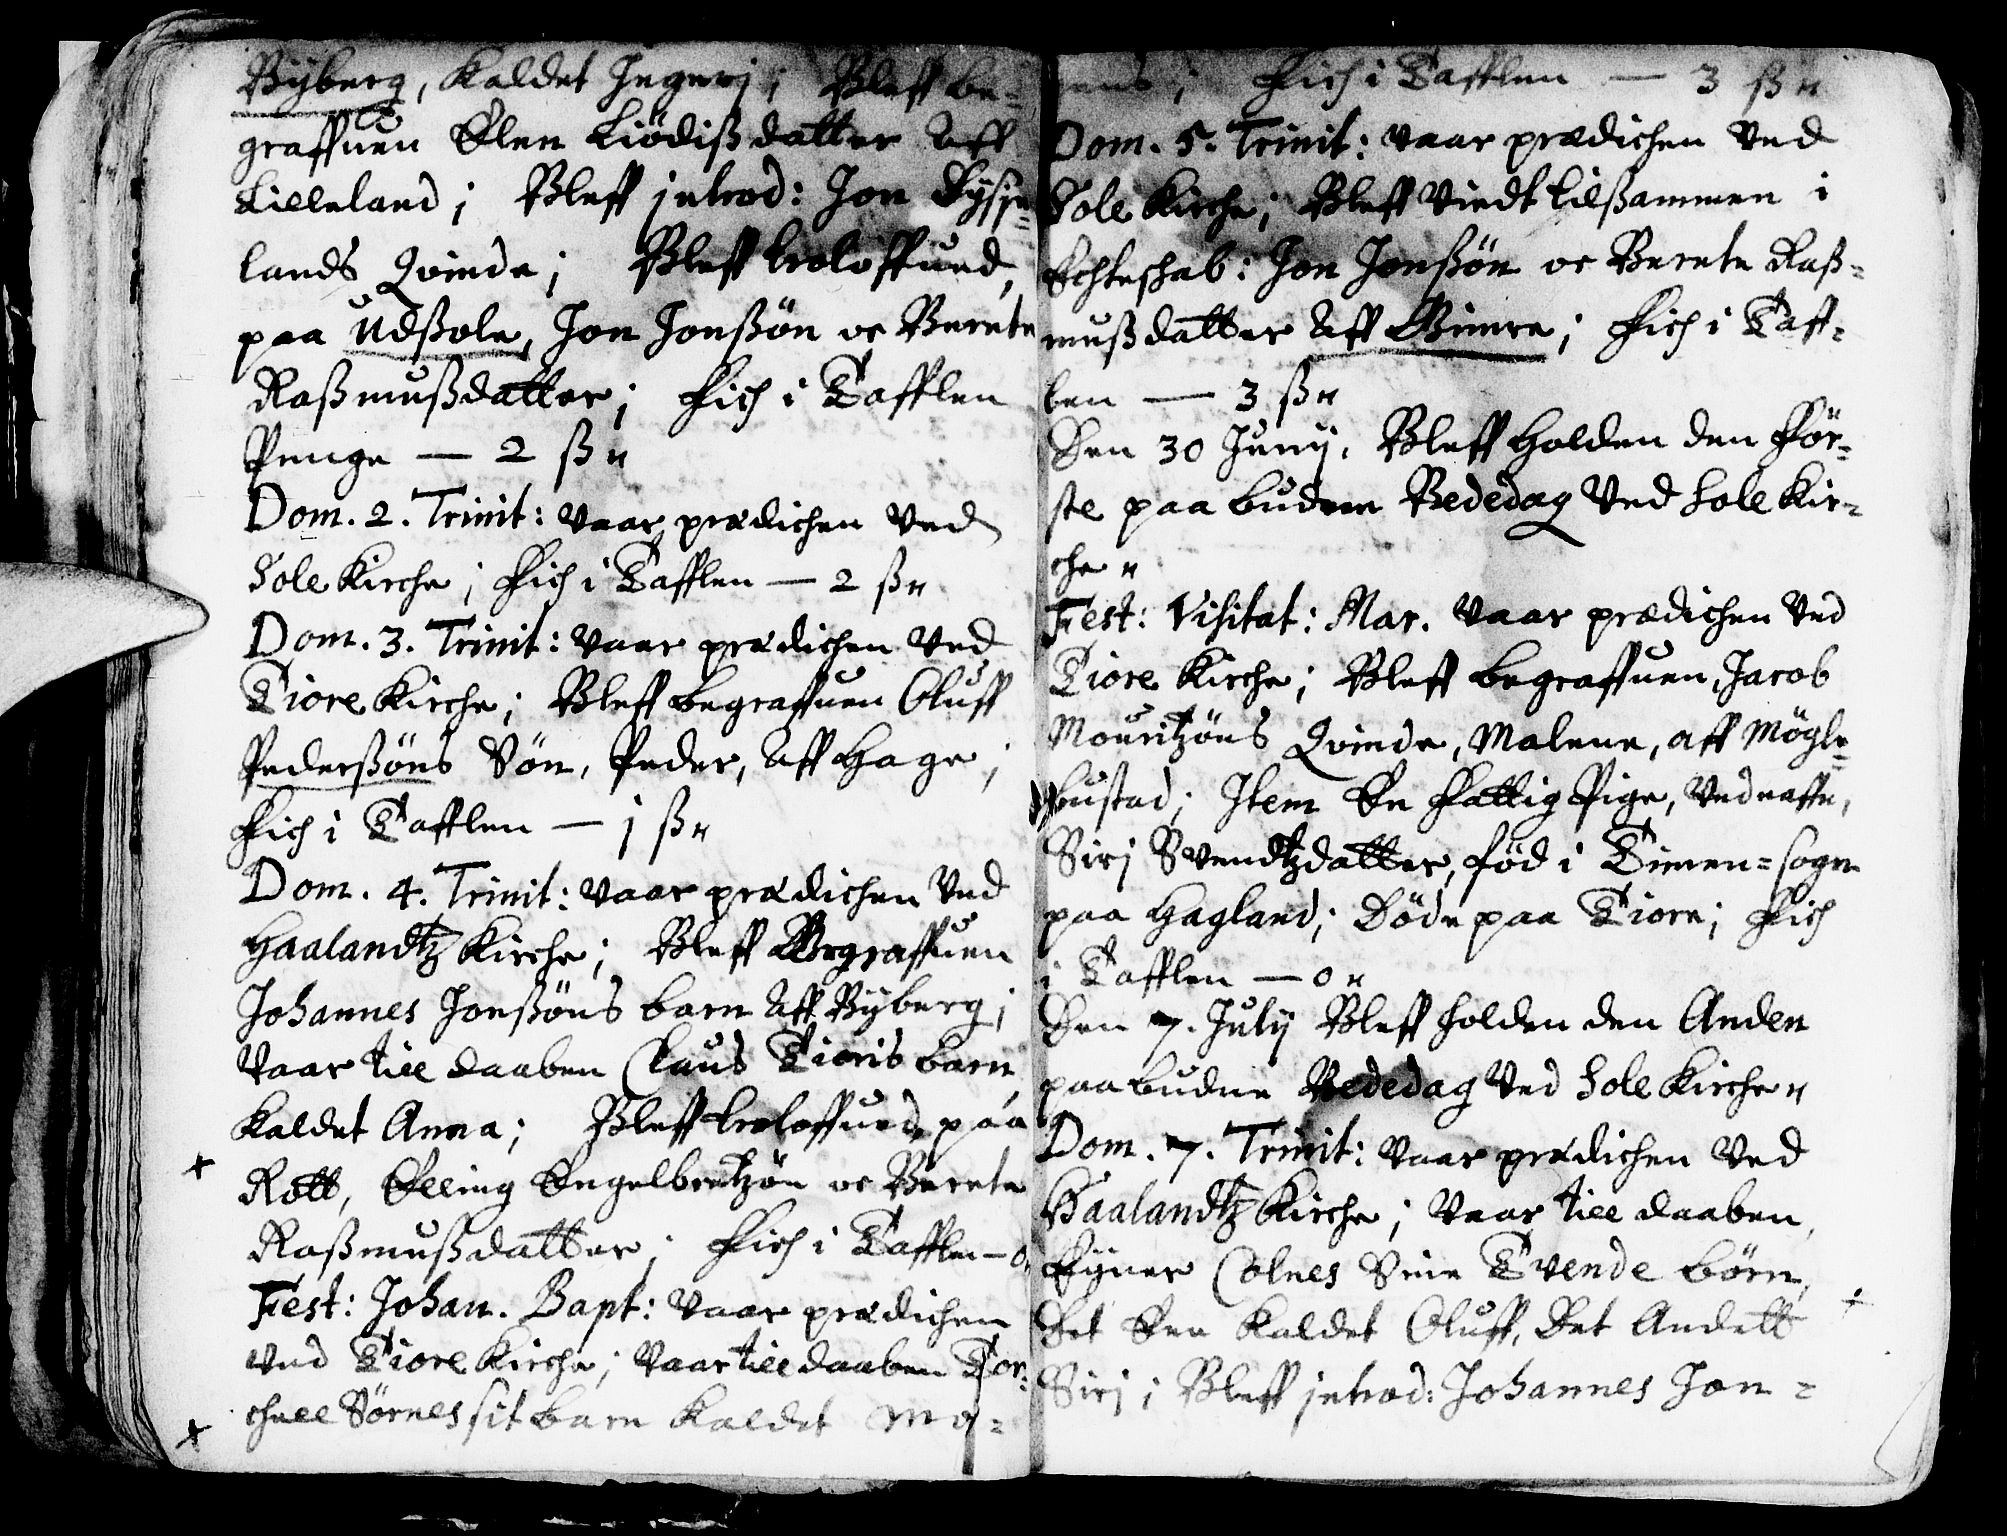 Byberg, kaldet Ingerj; Bleff be-
graffuen Elen Liödißdatter Aff
Lilleland; Bleff introd: Jon Bysse-
lands Qvinde; Bleff troloffued,
paa Udßole, Jon Jonßön oc Berete
Raßmußdatter; Fich i Tafflen
Penge — 2 ß"
Dom. 2. Trinit: vaar prædichen Ved
Sole Kirche; Fich i Tafflen — 2 ß"
Dom. 3. Trinit: vaar prædichen Ved
Tiore Kirche; Bleff begraffuen Oluff
Pederßöns Sön, Peder, Aff Hage;
Fich i Tafflen — j ß"
Dom. 4. Trinit: vaar prædichen Ved
Haalandtz Kirche; Bleff Begraffuen
Johannes Jonßöns barn Aff Byberg;
Vaar till daaben Claus Tioris barn,
kaldet Anna; Bleff troloffued, paa
Rott, Elling Engelbretzön oc Berete
Raßmußdatter; Fich i Tafflen — 0"
Fest: Johan. Bapt: vaar prædichen
Ved Tiore Kirche; Vaar till daaben Tor-
chell Sörnes sit barn kaldet Mo-
nens; Fich i Tafflen — 3 ß"
Dom. 5. Trinit: vaar prædichen Ved
Sole Kirche; Bleff Viedt tilßammen i
Echteschab: Jon Jonßön oc Berete Raß-
mußdatter Aff Gimre; Fich i Taff-
len — 3 ß"
Den 30 Junij, Bleff Holden den För-
ste paabudne Bededag Ved Sole Kir-
che"
Fest: Visitat: Mar. vaar prædichen Ved
Tiore Kirche; Bleff begraffuen, Jacob
Mouritzöns Qvinde, Malene, aff Mögle-
bustad; Item En Fattig Pige, Ved naffn,
Sirj Svendtzdatter, Född i Timen-sogn
paa Hagland; Döde paa Tiore; Fich
i Tafflen — 0"
Den 7. July Bleff Holden den Anden
paabudne Bededag Ved Sole Kirche"
Dom. 7. Trinit: vaar prædichen Ved
Haalandtz Kirche; Vaar till daaben,
Eyner Colnes Sine Tvende börn,
Det Een kaldet Oluff, Det Andett
Sirj; Bleff introd: Johannes Jon-